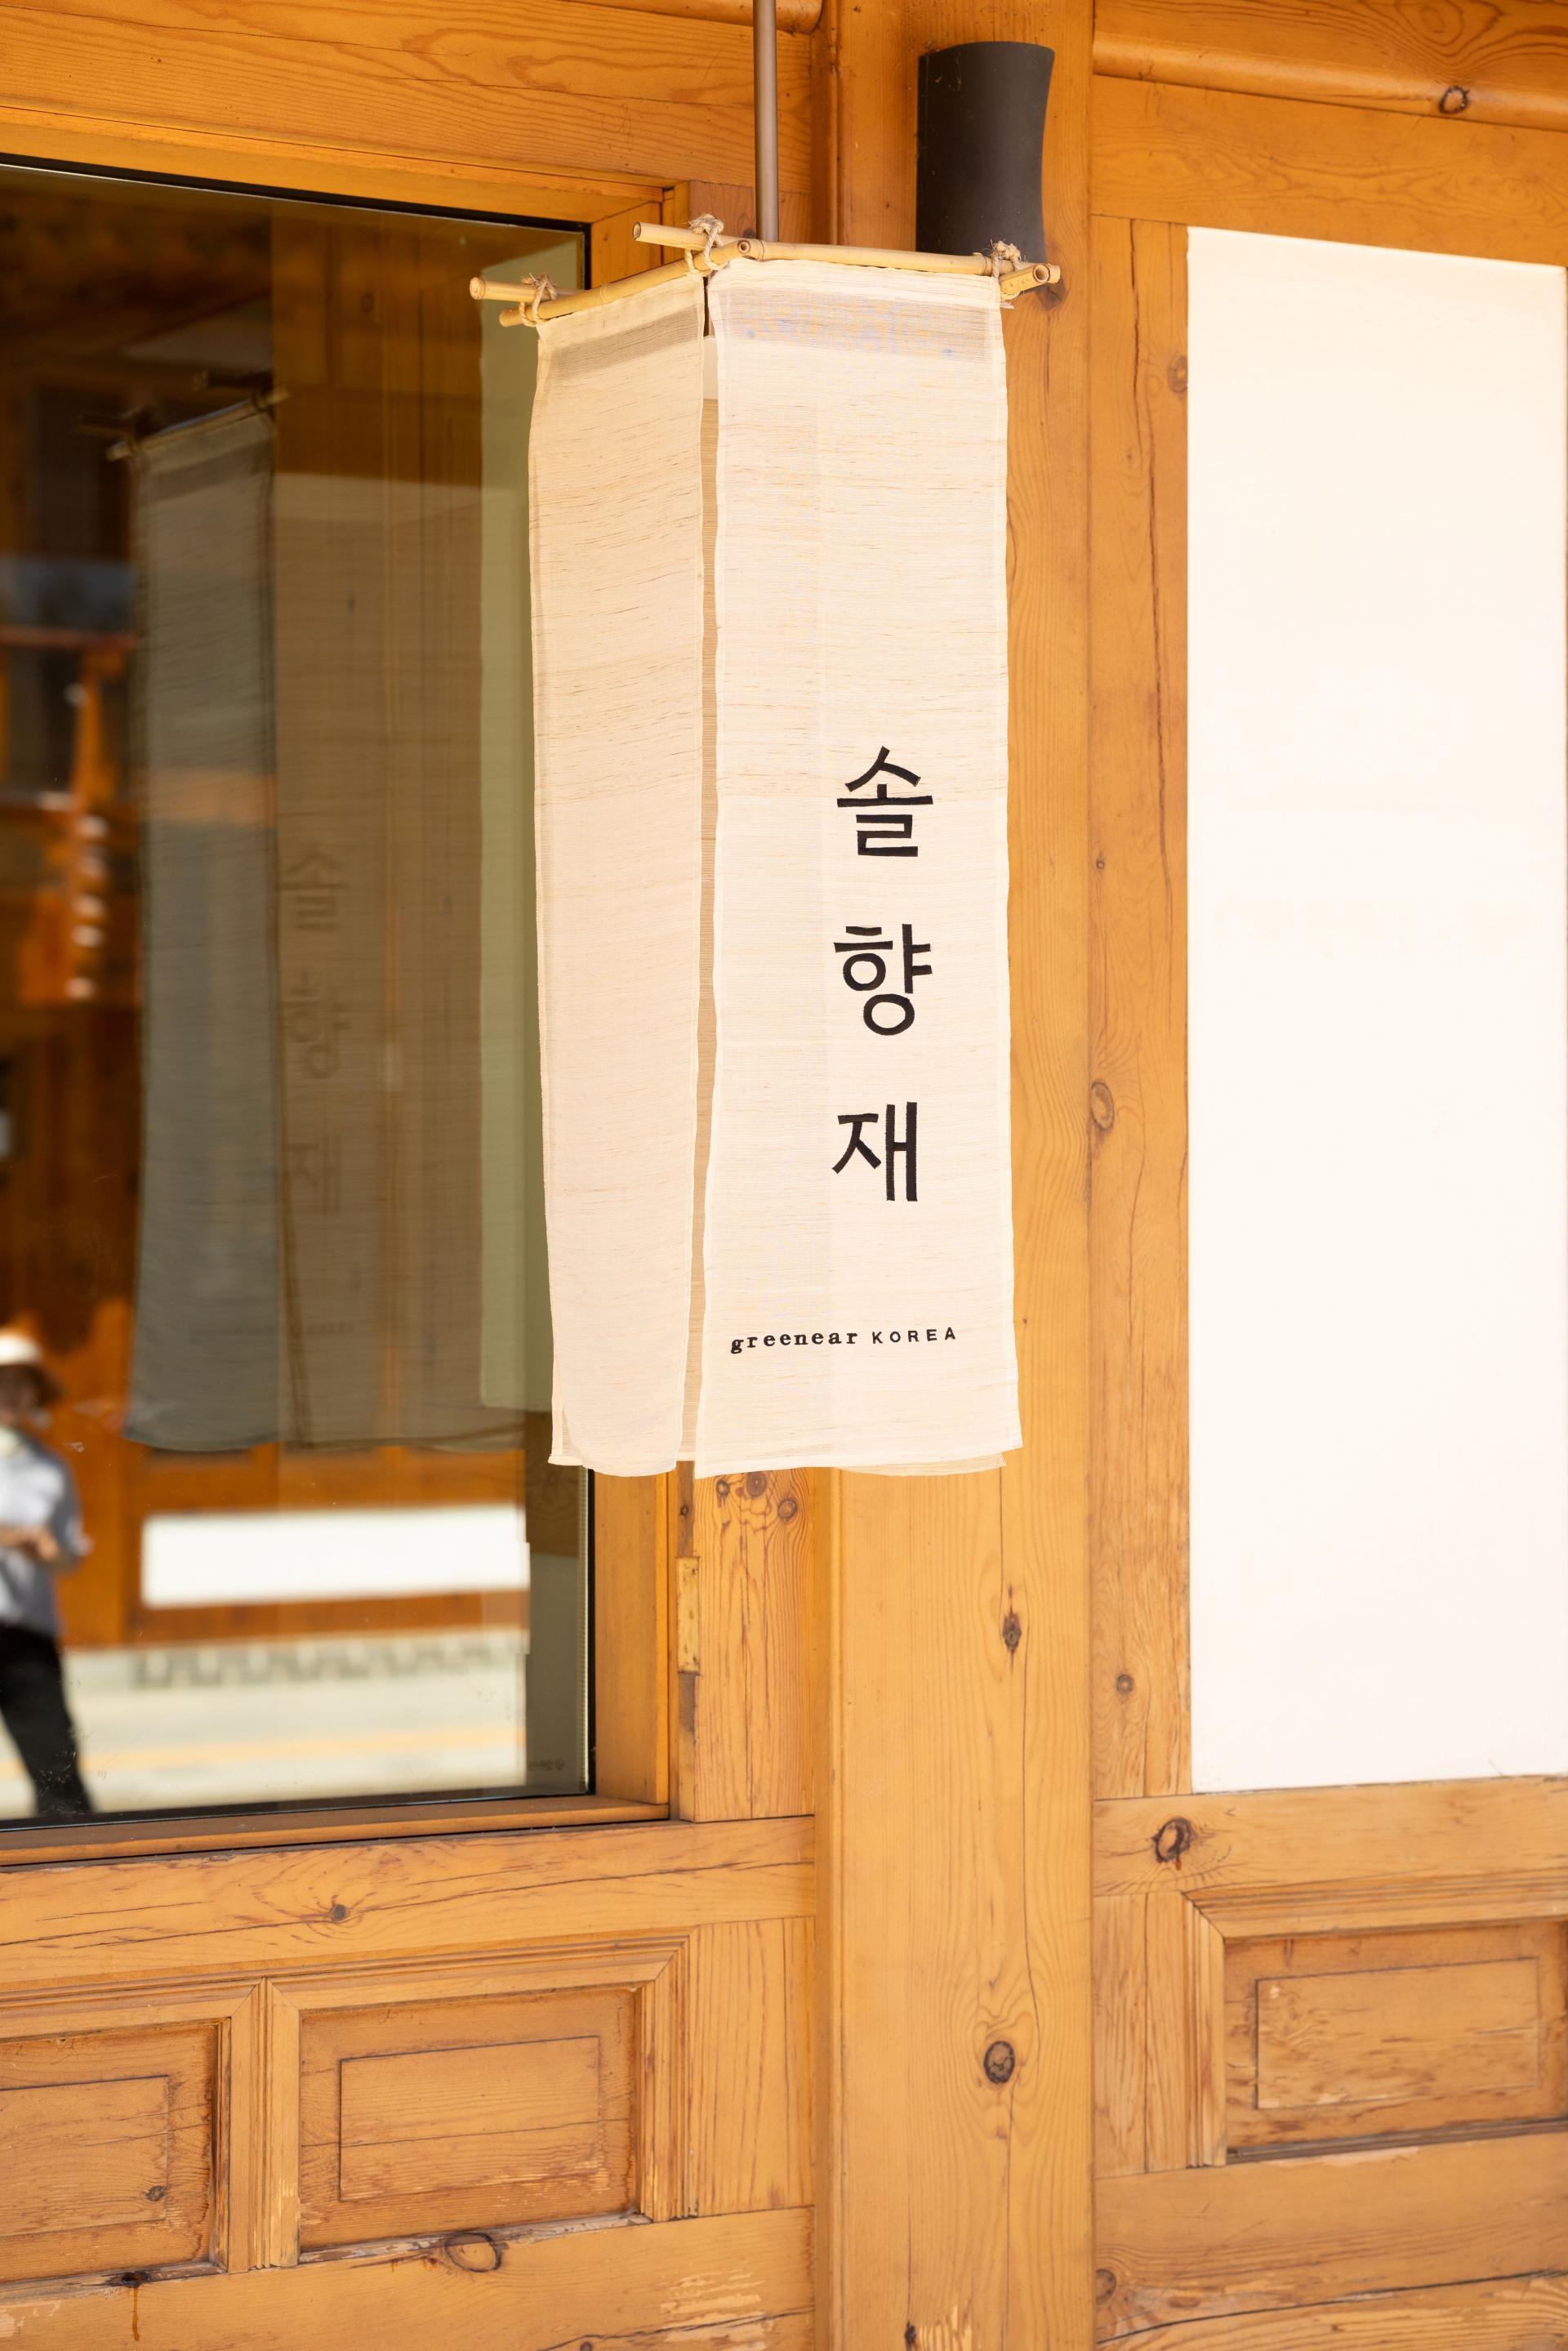 솔향재
greenear KOREA